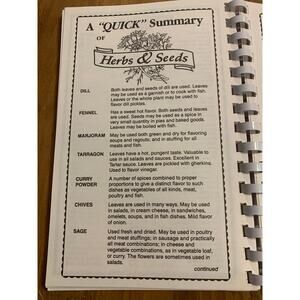 A "QUICK" Summary
OF
Herbs & Seeds
DILL Both leaves and seeds of dill are used. Leaves
may be used as a garnish or to cook with fish.
Leaves or the whole plant may be used to
flavor dill pickles.
FENNEL Has a sweet hot flavor. Both seeds and leaves
are used. Seeds may be used as a spice in
very small quantity in pies and baked goods.
Leaves may be boiled with fish.
MARJORAM May be used both green and dry for flavoring
soups and ragouts; and in stuffing for all
meats and fish.
TARRAGON Leaves have a hot, pungent taste. Valuable to
use in all salads and sauces. Excellent in
Tartar sauce. Leaves are pickled with gherkins.
Used to flavor vinegar.
CURRY A number of spices combined to proper
POWDER proportions to give a distinct flavor to such
dishes as vegetables of all kinds, meat,
poultry and fish.
CHIVES Leaves are used in many ways. May be used
in salads, in cream cheese, in sandwiches,
omelets, soups, and in fish dishes. Mild flavor
of onion.
SAGE Used fresh and dried. May be used in poultry
and meat stuffings; in sausage and practically
all meat combinations; in cheese and
vegetable combinations, as in vegetable loaf,
or curry. The flowers are sometimes used in
salads.
continued